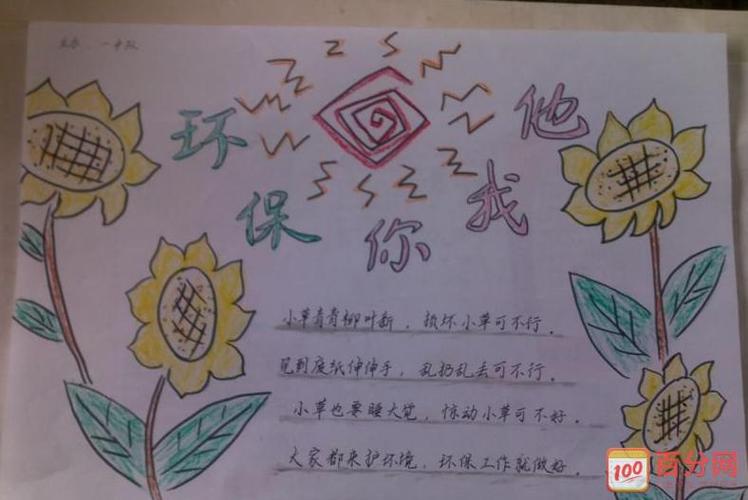 主办：一中队
环保你我他
小草青青柳叶新，损坏小草可不行。
见到废纸伸伸手，乱扔乱丢可不行。
小草也要睡大觉，惊动小草可不好。
大家都来护环境，环保工作就做好。
100 百分网